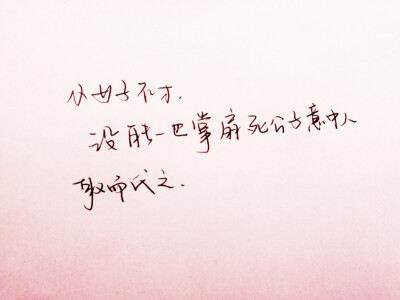 小女子不才.
没能一巴掌扇死公子意中人
取而代之.